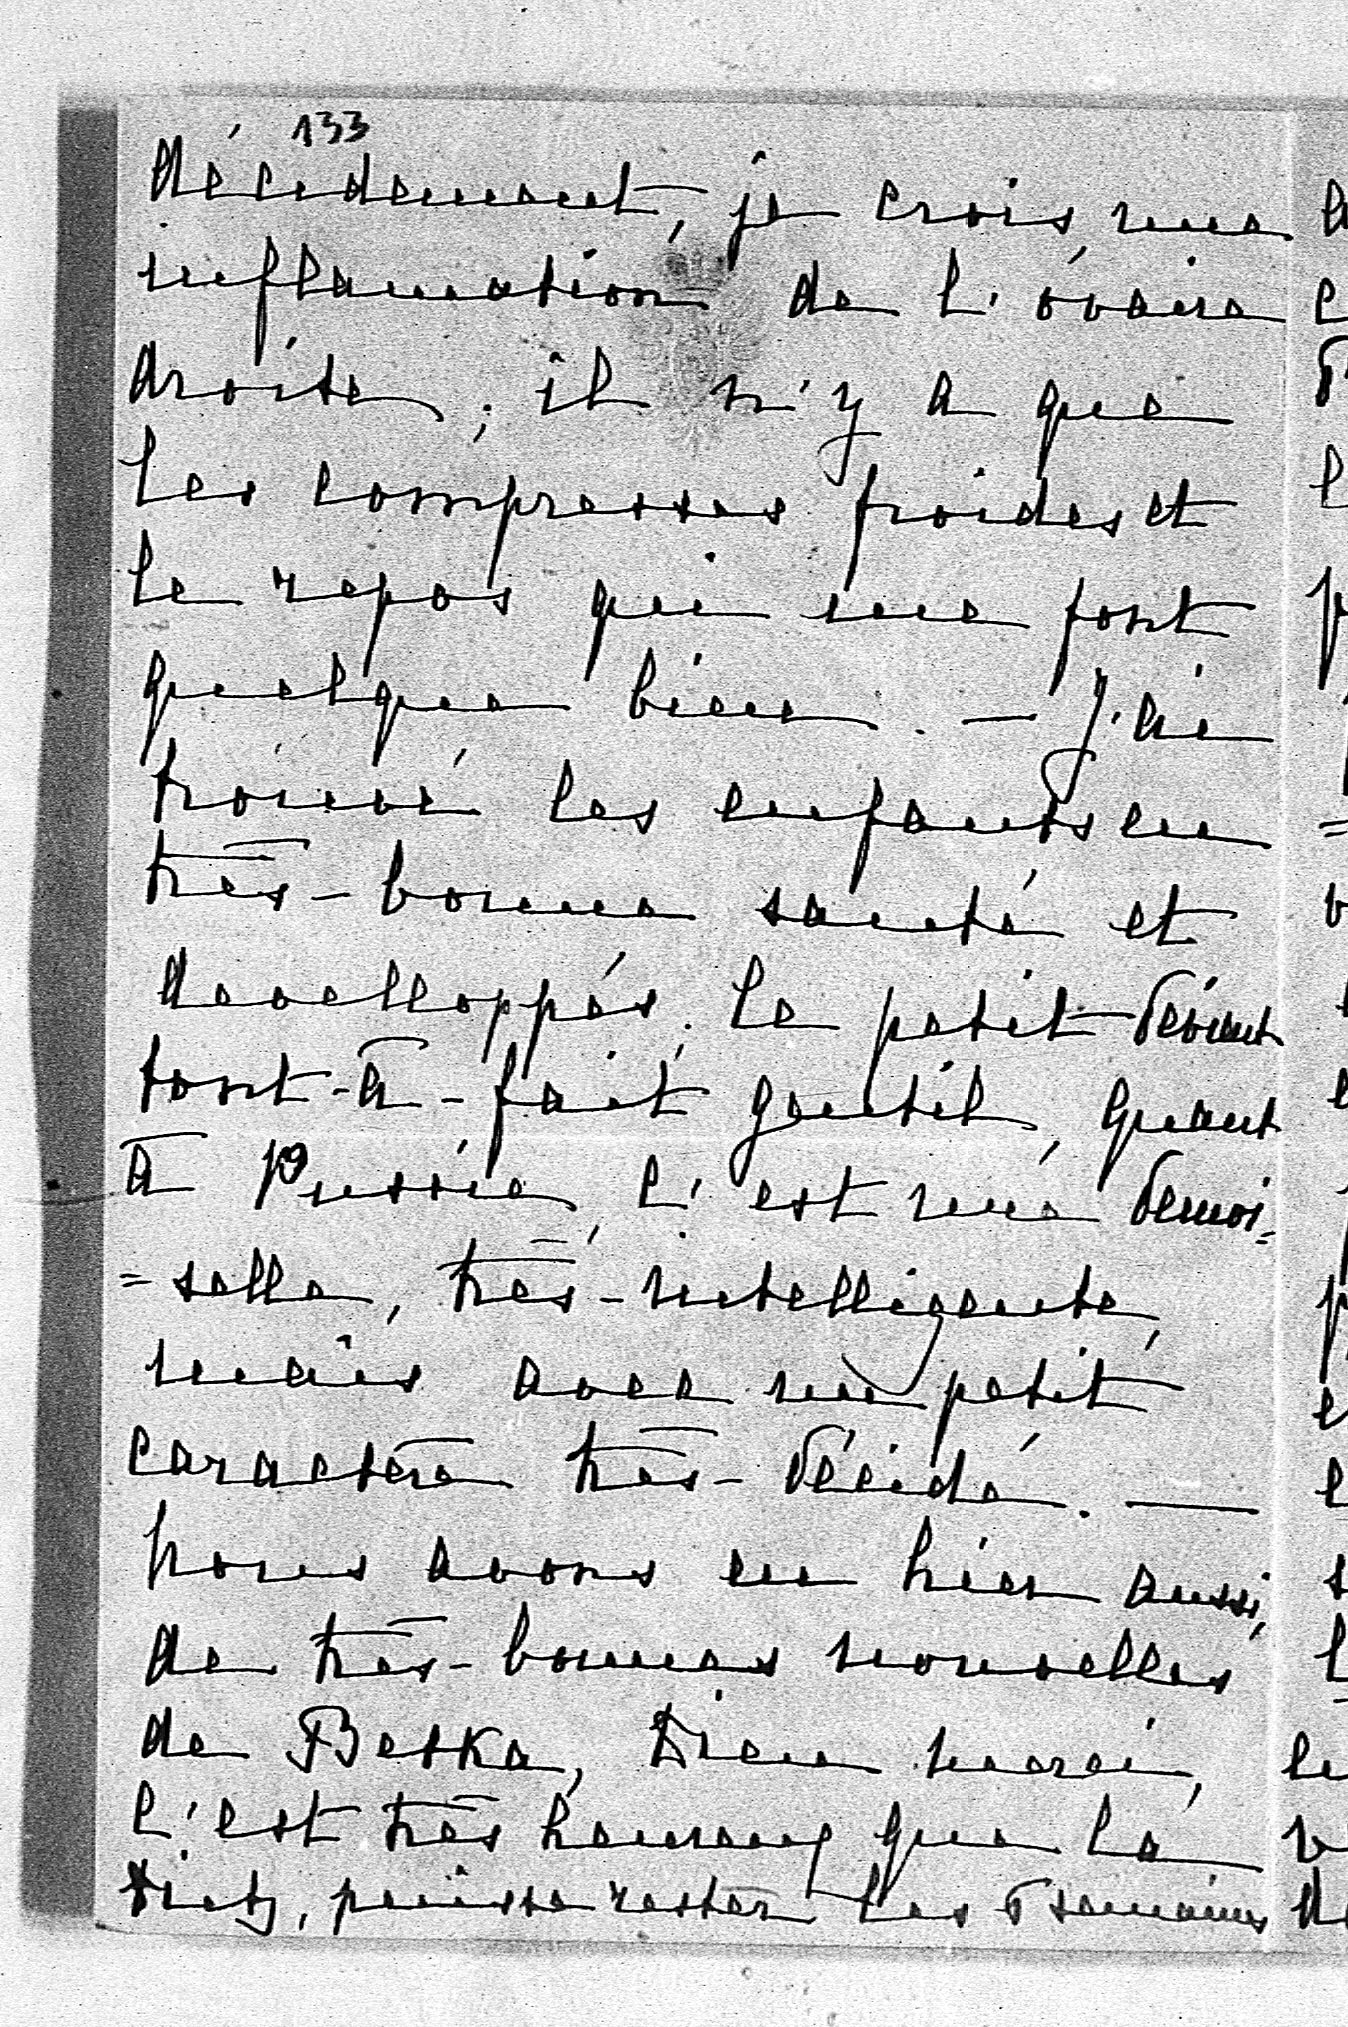 133
décedement, je crois, une
inflamation de l'óvaire
droite; il n'y a que
les compresses froides et
le repos qui me font
quelque bien. — J'ai
trouvé les enfants en
très-bonne santé et
develloppés. Le petit devient
tout-à-fait gentil, quant
à Pussie, c'est une demoi=
=selle, très-intelligente,
mais avec un petit
caractère très-décidé. —
Nous avons eu hier aussi,
de très-bonnes nouvelles
de Beska, Dieu merci,
c'est très heureux que la
Dietz, puisse rester les 6 semaines